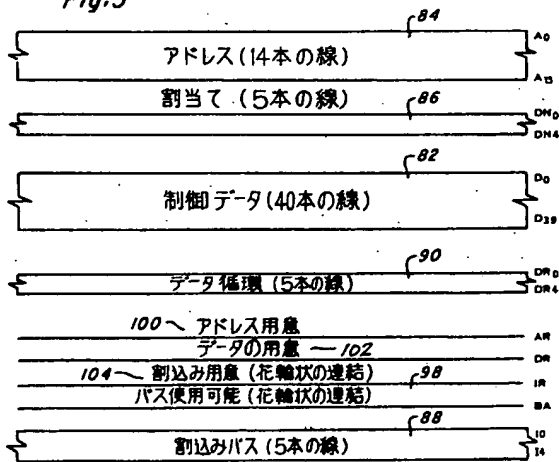 Fig.5
84
アドレス(14本の線)
A0
A13
割当て (5本の線)
86
DN0
DN4
82
制御データ(40本の線)
D0
D39
90
データ循環 (5本の線)
DR0
DR4
100 アドレス用意
AR
データの用意 102
DR
104 割込み用意 (花輪状の連結)
98
IR
バス使用可能 (花輪状の連結)
BA
88
割込みバス (5本の線)
I0
I4